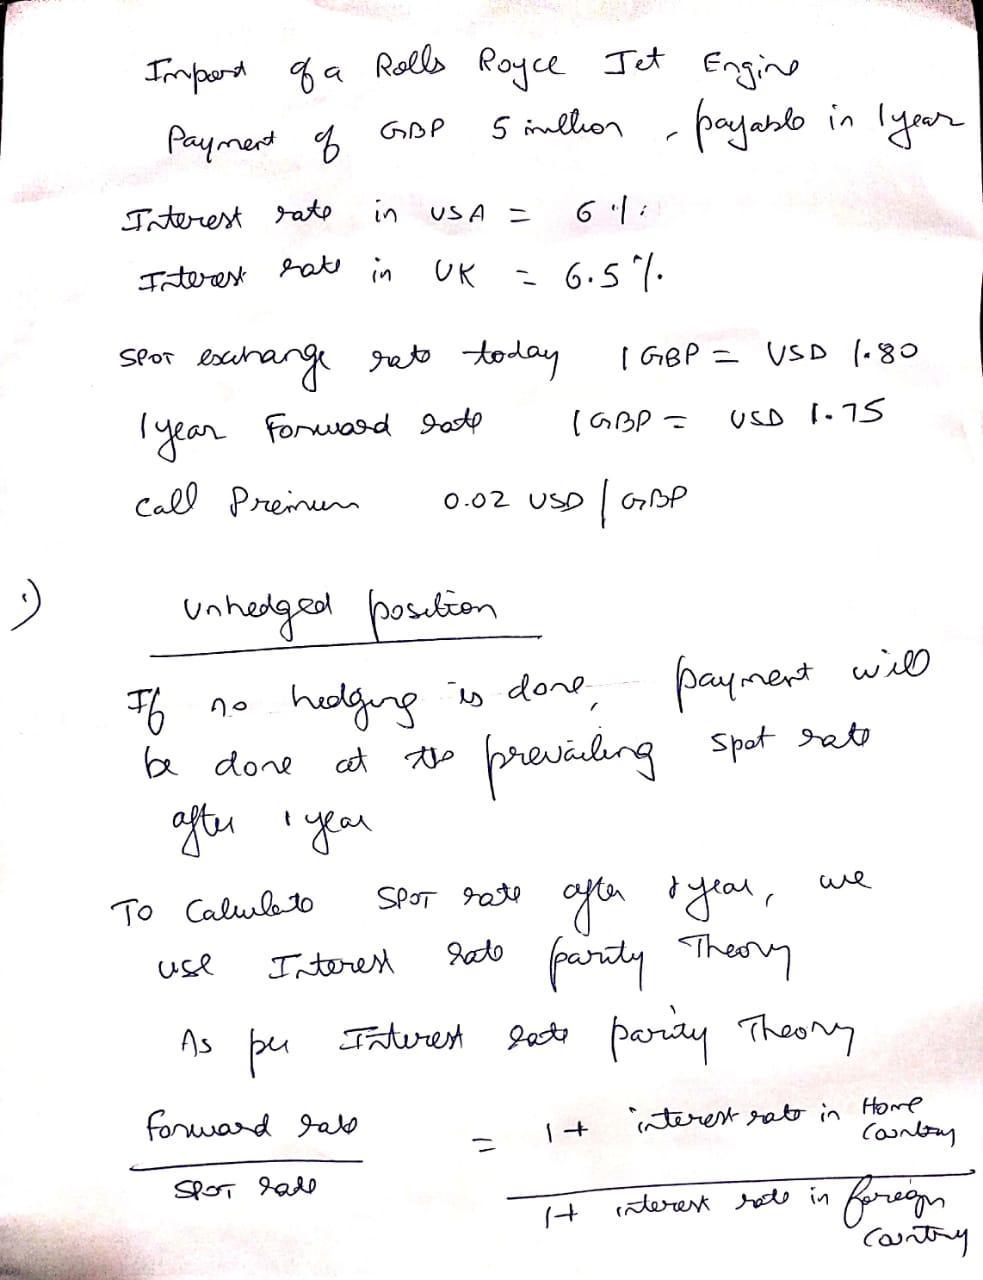 Import of a Rolls Royce Jet Engine
Payment of GBP 5 million, payable in 1 year
Interest rate in USA = 6%
Interest rate in UK = 6.5%
SPOT exchange rate today 1 GBP = USD 1.80
1 year Forward rate 1 GBP = USD 1.75
Call Premium 0.02 USD / GBP
i) Unhedged position
If no hedging is done, payment will
be done at the prevailing spot rate
after 1 year
To Calculate SPOT rate after 1 year, we
use Interest Rate parity Theory
As per Interest rate parity Theory
forward rate = 1+ interest rate in Home Country
SPOT rate 1+ interest rate in foreign Country